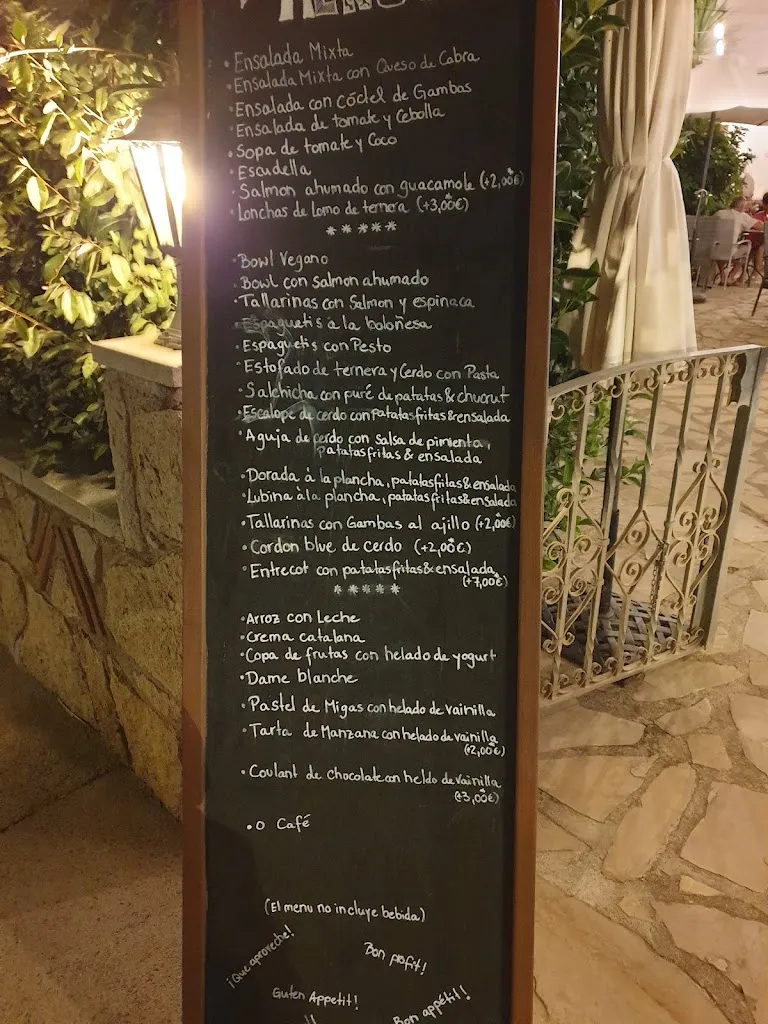 • Ensalada Mixta
• Ensalada Mixta con Queso de Cabra
• Ensalada con cóctel de Gambas
• Ensalada de tomate y Cebolla
• Sopa de tomate y Coco
• Escudella
• Salmon ahumado con guacamole (+2,00€)
• Lonchas de lomo de ternera (+3,00€)
*****
• Bowl Vegano
• Bowl con salmon ahumado
• Tallarinas con Salmon y espinaca
• Espaguetis a la boloñesa
• Espaguetis con Pesto
• Estofado de ternera y Cerdo con Pasta
• Salchicha con puré de patatas & chucrut
• Escalope de cerdo con patatas fritas & ensalada
• Aguja de cerdo con salsa de pimienta,
patatas fritas & ensalada
• Dorada à la plancha, patatas fritas & ensalada
• Lubina à la plancha, patatas fritas & ensalada
• Tallarinas con Gambas al ajillo (+2,00€)
• Cordon blue de cerdo (+2,00€)
• Entrecot con patatas fritas & ensalada,
(+7,00€)
*****
• Arroz con Leche
• Crema catalana
• Copa de frutas con helado de yogurt
• Dame blanche
• Pastel de Migas con helado de vainilla
• Tarta de Manzana con helado de vainilla
(+2,00€)
• Coulant de chocolate con heldo de vainilla
(+3,00€)
• o Café
(El menu no incluye bebida)
¡Que aproveche!
Bon profit!
Guten Appetit!
Bon appétit!